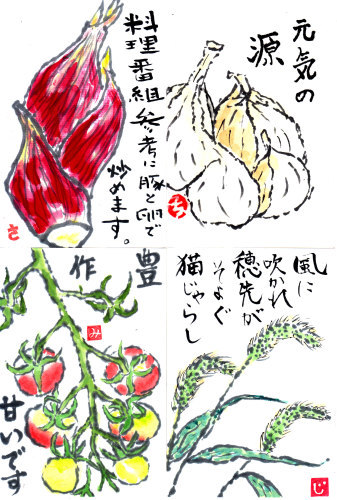 料理番組参考に豚と卵で
炒めます。
さ
元気の
源
ち
豊
作
み
甘いです
風に
吹かれ
穂先が
そよぐ
猫じゃらし
じ